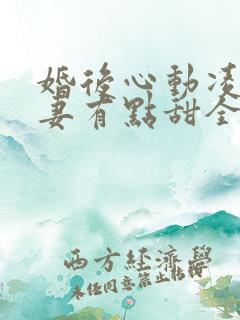 婚後心動凌
妻有點甜全
西方經濟學
未經同意禁止轉授